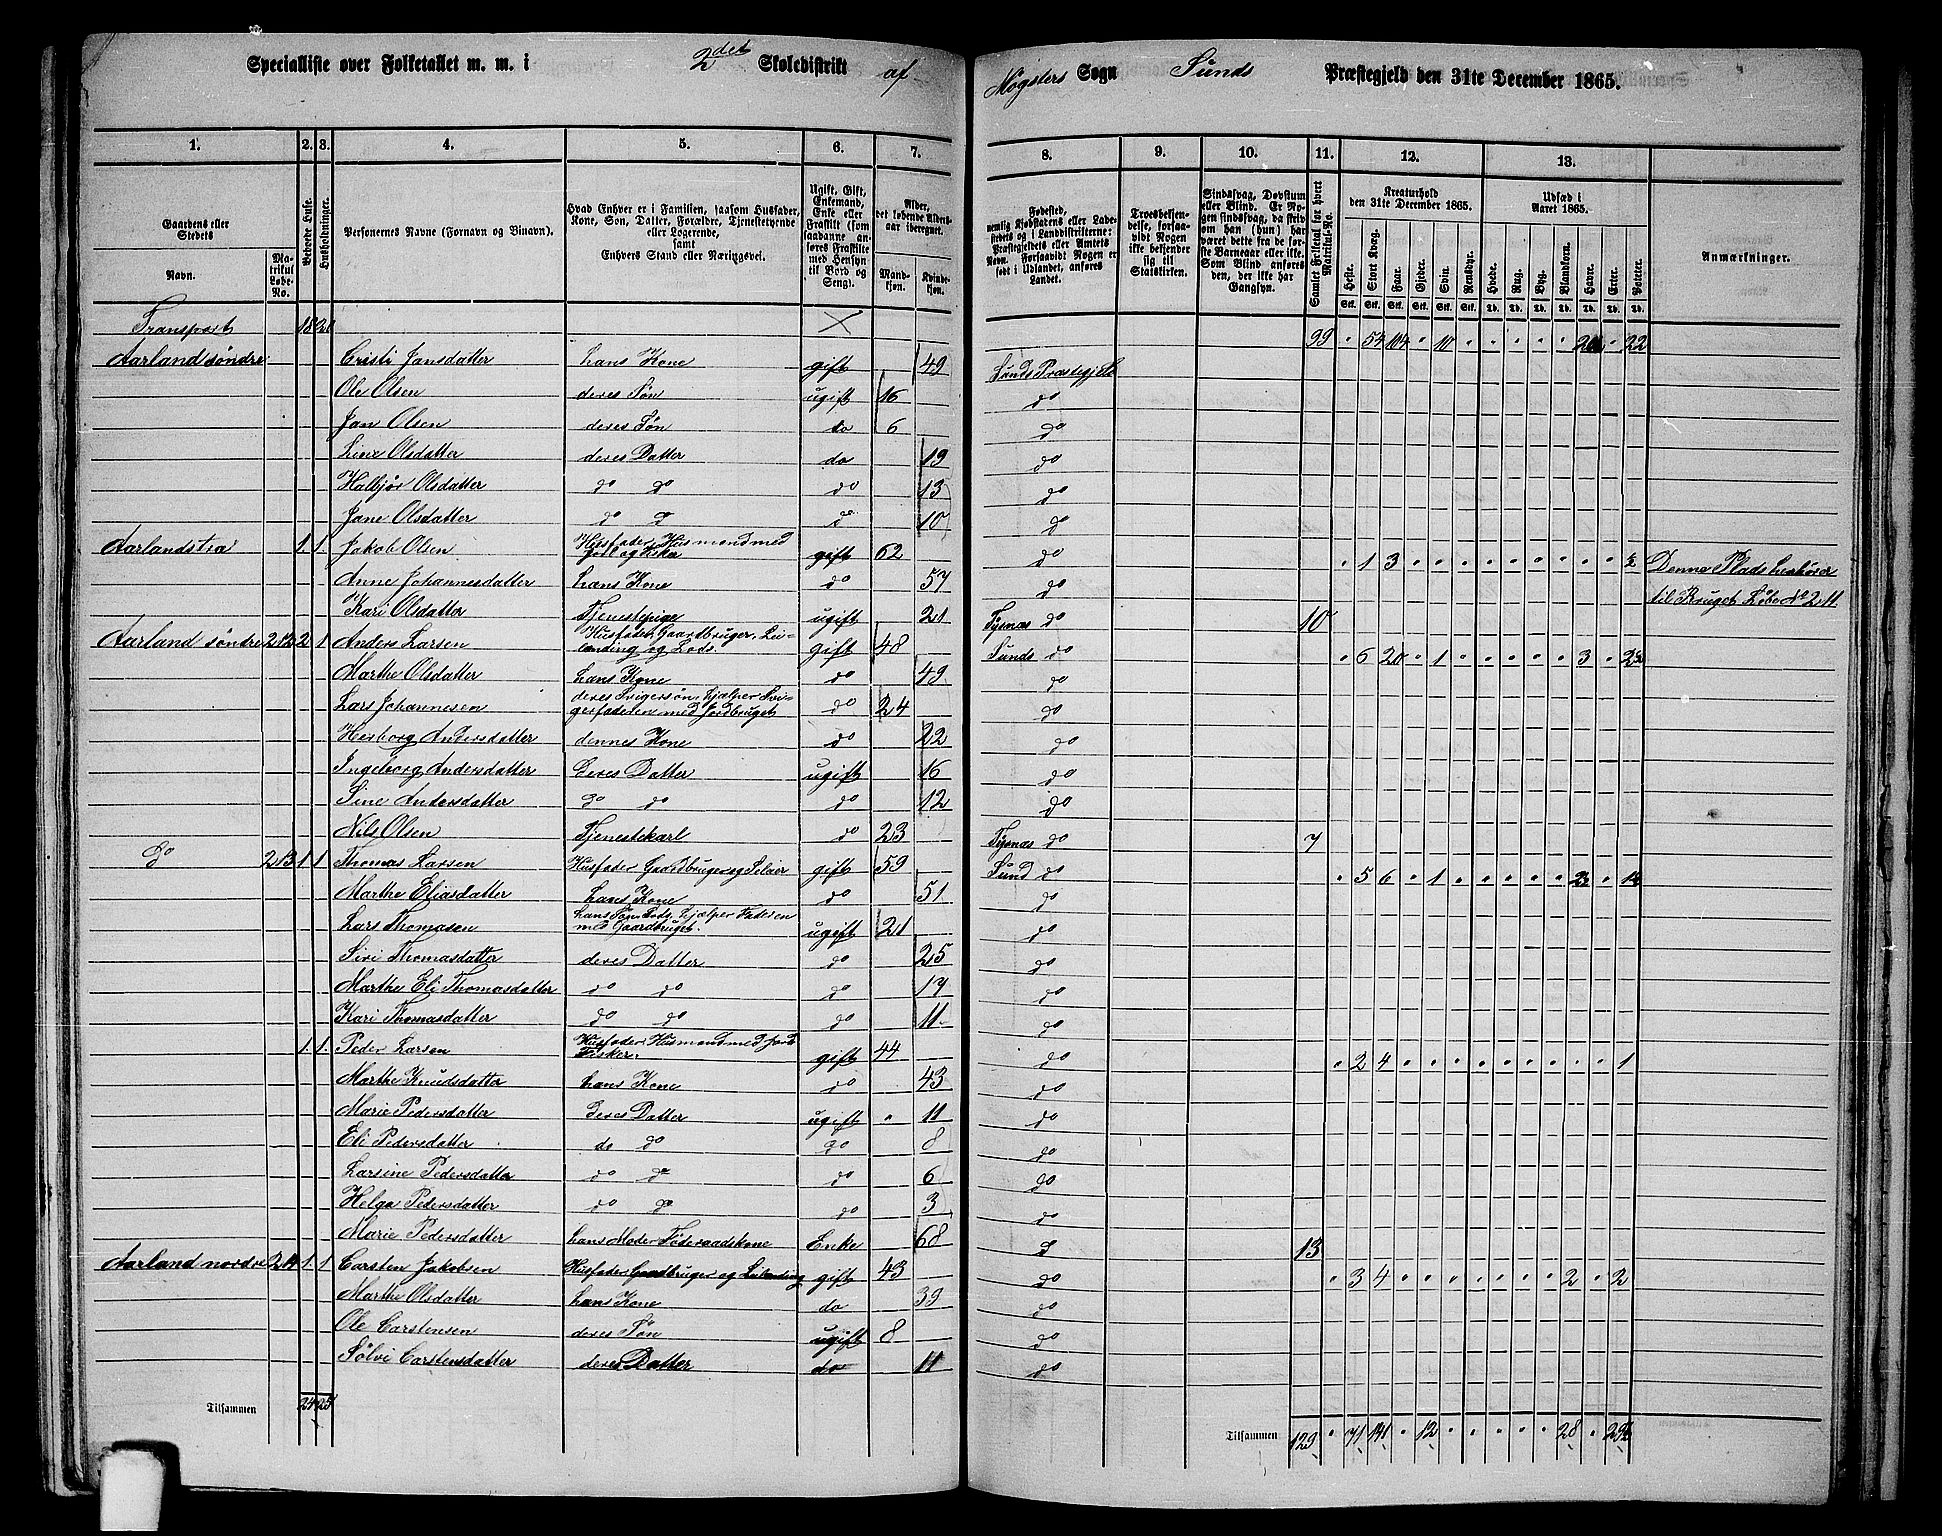 Specialliste over Folketallet m. m. i 2det Skoledistrikt af Møgsters Sogn Sunds Præstegjeld den 31te December 1865.
1. 2. 3. 4. 5. 6. 7. 8. 9. 10. 11. 12. 13.
Gaardens eller Stedets
Navn. Matrikul Løbe-No.
Beboede Huse.
Husholdninger.
Personernes Navne (Fornavn og Binavn).
Hvad Enhver er i Familien, saasom Husfader, Kone, Søn, Datter, Forældre, Tjenestetyende eller Logerende, samt Enhvers Stand eller Næringsvei.
Ugift, Gift, Enkemand, Enke eller Fraskilt (som saadanne anføres Fraskilte med Hensyn til Bord og Seng).
Alder, det løbende Aldersaar iberegnet.
Mandkjøn. Kvindekjøn.
Fødested, nemlig Kjøbstadens eller Ladestedets og i Landdistrikterne: Præstegjeldets eller Amtets Navn. Forsaavidt Nogen er født i Udlandet, anføres Landet.
Troesbekjendelse, forsaavidt Nogen ikke bekjender sig til Statskirken.
Sindssvag, Døvstum eller Blind. Er Nogen sindssvag, da skriv om han (hun) har været dette fra de første Barneaar eller ikke. Som Blind anføres den, der ikke har Gangsyn.
Samlet Folketal for hvert Matrikul-No.
Kreaturhold den 31te December 1865.
Heste. Stort Kvæg. Faar. Gjeder. Svin. Rensdyr.
Udsæd i Aaret 1865.
Hvede. Rug. Byg. Blandkorn. Havre. Erter. Poteter.
Anmærkninger.
Transport 18 20 99 " 54 104 " 10 " " " " " " 22
Aarland søndre Cristi Jansdatter hans Kone gift 49 Sunds Præstegjeld
Ole Olsen deres Søn ugift 16 do
Jan Olsen deres Søn do 6 do
Line Olsdatter deres Datter do 19 do
Halbjør Olsdatter do do do 13 do
Jane Olsdatter do do do 10 do
Aarlandstræ 1 1 Jakob Olsen Husfader Husmand med Jord og Fisker gift 62 do " 1 3 " " " " " " " " " 2 Denne Plads henhører
Anne Johannesdatter hans Kone do 57 do til Bruget Løbe No 211
Kari Olsdatter Tjenestepige ugift 21 Tysnæs do 10
Aarland søndre 212 2 1 Anders Larsen Husfader, Gaardbruger, Leilending og Lods. gift 48 Sunds do " 6 20 " 1 " " " " " 3 "
Marthe Olsdatter hans Kone do 49 do
Lars Johannesen deres Svigersøn, hjælper Svigerfaderen med Jordbruget do 24 do
Herborg Andersdatter dennes Kone do 22 do
Ingeborg Andersdatter deres Datter ugift 16 do
Sine Andersdatter do do do 12 do
Nils Olsen Tjenestekarl do 23 Tysnæs do 7
do 213 1 1 Thomas Larsen Husfader Gaardbruger og Selveier gift 59 Sund do " 5 6 " 1 " " " " "
Marthe Eliasdatter hans Kone do 51 do
Lars Thomasen hans Søn, Lods, hjælper Faderen med Gaardbruget. ugift 21 do
Siri Thomasdatter deres Datter do 25 do
Marthe Eli Thomasdatter do do do 17 do
Kari Thomasdatter do do do 11 do
1. 1. Peder Larsen Husfader, Husmand med Jord Fisker. gift 44 do " 2 4 " " " " " " " " " 1
Marthe Knudsdatter hans Kone do 43 do
Marie Pedersdatter deres Datter ugift " 11 do
Eli Pedersdatter do do do 8 do
Larsine Pedersdatter do do do 6 do
Helga Pedersdatter do do do 3 do
Marie Pedersdatter hans Moder Føderaadskone Enke 68 do 13
Aarland nordre 214 1 1 Carsten Jakobsen Husfader Gaardbruger og Leilending gift 43 do " 3 4 " " " " " " " 2 " 2
Marthe Olsdatter hans Kone do 39 do
Ole Carstensen deres Søn ugift 8 do
Sølvi Carstensdatter deres Datter do 11 do
Tilsammen 24 25 Tilsammen 129 " 71 141 " 12 " " " " " 28 "